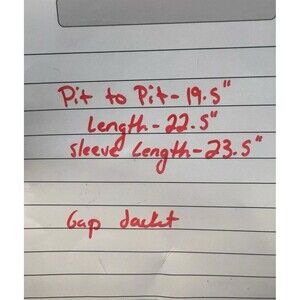 Pit to Pit-19.5"
Length-22.5"
Sleeve Length-23.5"
Gap Jacket